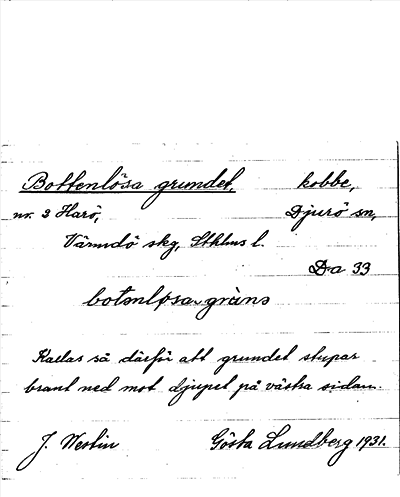 Bottenlösa grundet, kobbe,
nr. 3 Harö, Djurö sn,
Värmdö skg, Sthlms l.
Da 33
Kallas så därför att grundet stupar
brant ned mot djupet på västra sidan.
J. Westin Gösta Lundberg 1931.